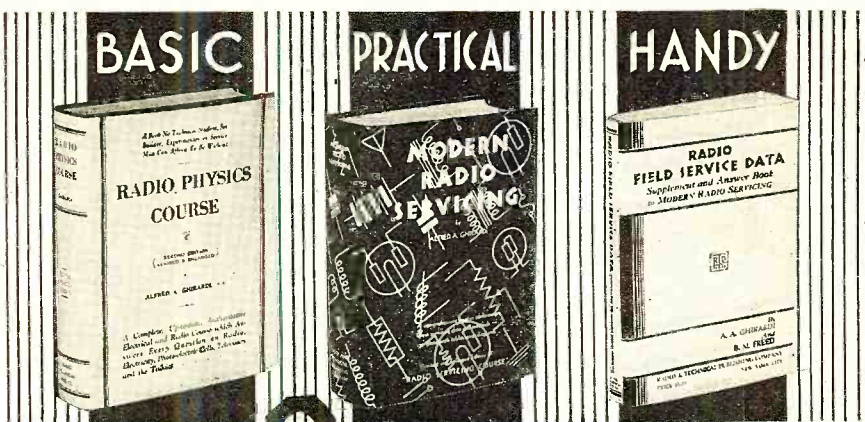 BASIC
PRACTICAL
HANDY
RADIO
PHYSICS
COURSE
A Book No Technical Student, Set
Builder, Experimenter or Service
Man Can Afford To Be Without
RADIO PHYSICS
COURSE
SECOND EDITION
ALFRED A. GHIRARDI
A Complete, Up-to-date,
Electrical and Radio Course which An-
swers Every Question on Radio,
Electricity, Photo-electric Cells, Television
and the Talkies
MODERN
RADIO
SERVICING
by
ALFRED A. GHIRARDI
RADIO SERVICING COURSE
RADIO
FIELD SERVICE DATA
Supplement and Answer Book
to MODERN RADIO SERVICING
By
A. A. GHIRARDI
And
B. M. FREED
RADIO & TECHNICAL PUBLISHING COMPANY
NEW YORK CITY